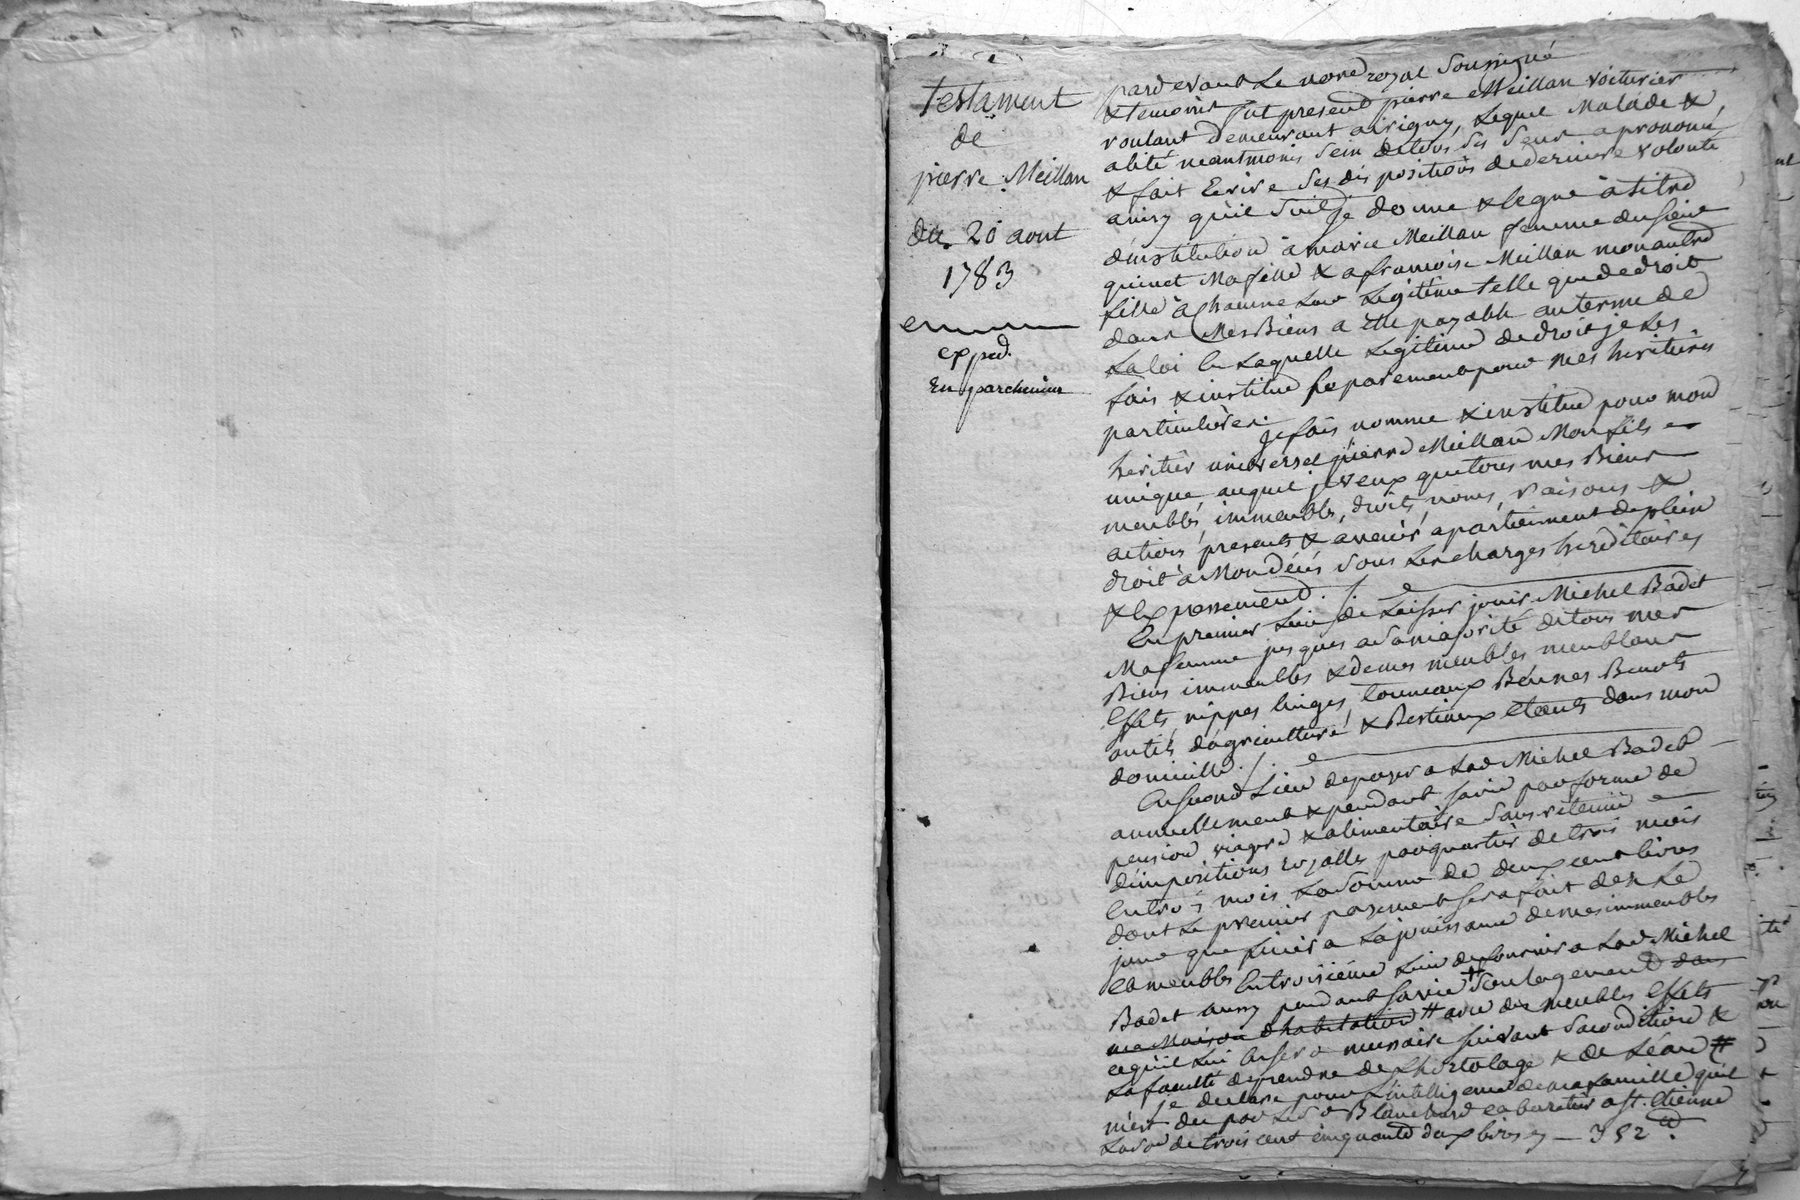 Testament
de
pierre Meillan
du 20 aout
1783
exped.
En parchemin
pardevant Le nore royal Soussigné
& temoins fut present pierre Meillan voiturier
roulant demeurant a irigny, Lequel Malade &
alité neantmoins Sein de tous Ses Sens a prononcé
& fait Ecrire Ses dispositions de derniere volonté
ainsy qu'il Suit je donne & legue à titre
d'institution à marie Meillan femme du sieur
quinet Ma fille & a francoise Meillan mon autre
fille à Chacune Leur Legitime telle que de droit
dans Mes Biens a elle payable au terme de
La loi En Laquelle Legitime de droit je Les
fais & institue Separement pour mes heritieres
particulieres.
je fais nomme & institue pour mon
heritier universel pierre Meillan Mon fils
unique auquel je veux que tous mes Biens
meubles, immeubles, droits, noms, raisons &
actions presents & avenir apartiennent de plein
droit à Mon décés Sous Les charges hereditaires
& Expressement ./.
En premier Lieu de Laisser jouir Michel Badet
Ma femme jusques a Sa majorité de tous mes
Biens immeubles & de mes meubles meublans
Effets, nippes linges, tonneaux Bennes Benots
outils d'agriculture & Bestiaux Etants dans mon
domicille ./.
En Second Lieu de payer a Lad Michel Badet
annuellement & pendant Sa vie par forme de
pension viagere & alimentaire Sans retenue
d'impositions royalles par quartier de trois mois
En trois mois La Somme de deux cent livres
dont Le premier payement Sera fait dez Le
jour que finira La jouissance de mes immeubles
Et meubles En troisiéme Lieu de fournir a Lad Michel
Badet aussy pendant Sa vie + Soulagement dans
ma Maison d'habitation # avec des meubles Effets
ce qu'il Lui En Sera necessaire Suivant Sa condition &
La faculté de prendre de L'hortolage & de Leau #
Je declare pour L'intelligence de ma famille qu'il
m'est du par Le Sr Blanchard cabaretier a St. Etienne
La So de trois cent cinquante deux livres - 352 ₶.